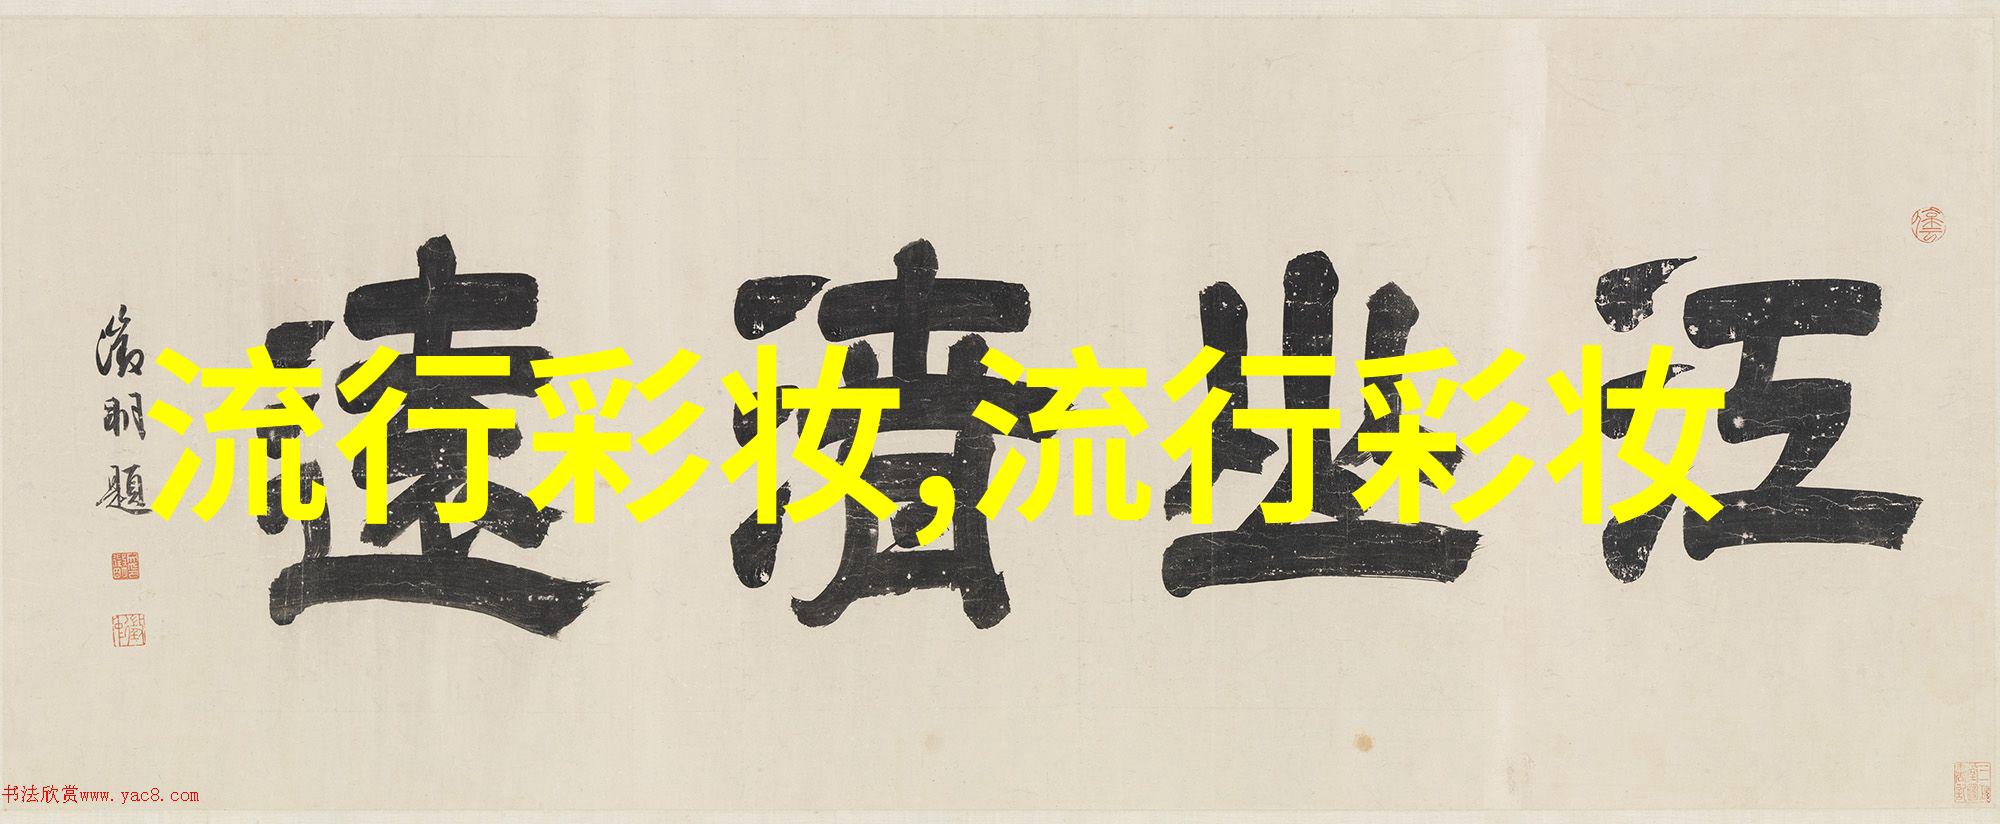 江山清遠
徵明題
流行彩妆,流行彩妆
书法欣赏www.yac8.com